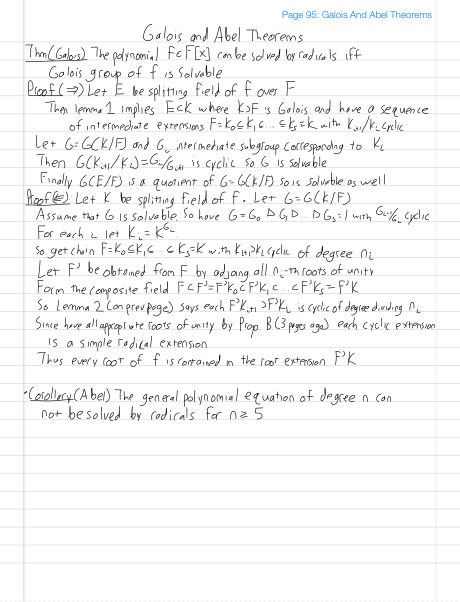 Page 95: Galois And Abel Theorems
Galois and Abel Theorems
Thm (Galois) The polynomial f∈F[x] can be solved by radicals iff
Galois group of f is Solvable
Proof (⇒) Let E be splitting field of f over F
Then lemma 1 implies E⊂K where K⊃F is Galois and have a sequence
of intermediate extensions F=K₀⊆K₁⊆...⊆Kₛ=K with Kᵢ₊₁/Kᵢ cyclic
Let G=G(K/F) and Gᵢ intermediate subgroup corresponding to Kᵢ
Then G(Kᵢ₊₁/Kᵢ)=Gᵢ/Gᵢ₊₁ is cyclic so G is solvable
Finally G(E/F) is a quotient of G=G(K/F) so is solvable as well
Proof (⇐): Let K be splitting field of f. Let G=G(K/F)
Assume that G is solvable. So have G=G₀ ⊵ G₁ ⊵ ... ⊵ Gₛ=1 with Gᵢ₋₁/Gᵢ cyclic
For each i let Kᵢ=K^Gᵢ
So get chain F=K₀⊆K₁⊆...⊆Kₛ=K with Kᵢ₊₁⊃Kᵢ cyclic of degree nᵢ
Let F' be obtained from F by adjoing all nᵢ-th roots of unity
Form the composite field F⊂F'=F'K₀⊂F'K₁⊂...⊂F'Kₛ=F'K
So Lemma 2 (on prev page) says each F'Kᵢ₊₁⊃F'Kᵢ is cyclic of degree dividing nᵢ
Since have all appropriate roots of unity by Prop B (3 pages ago) each cyclic extension
is a simple radical extension
Thus every root of f is contained in the root extension F'K
• Corollary (Abel) The general polynomial equation of degree n can
not be solved by radicals for n≥5